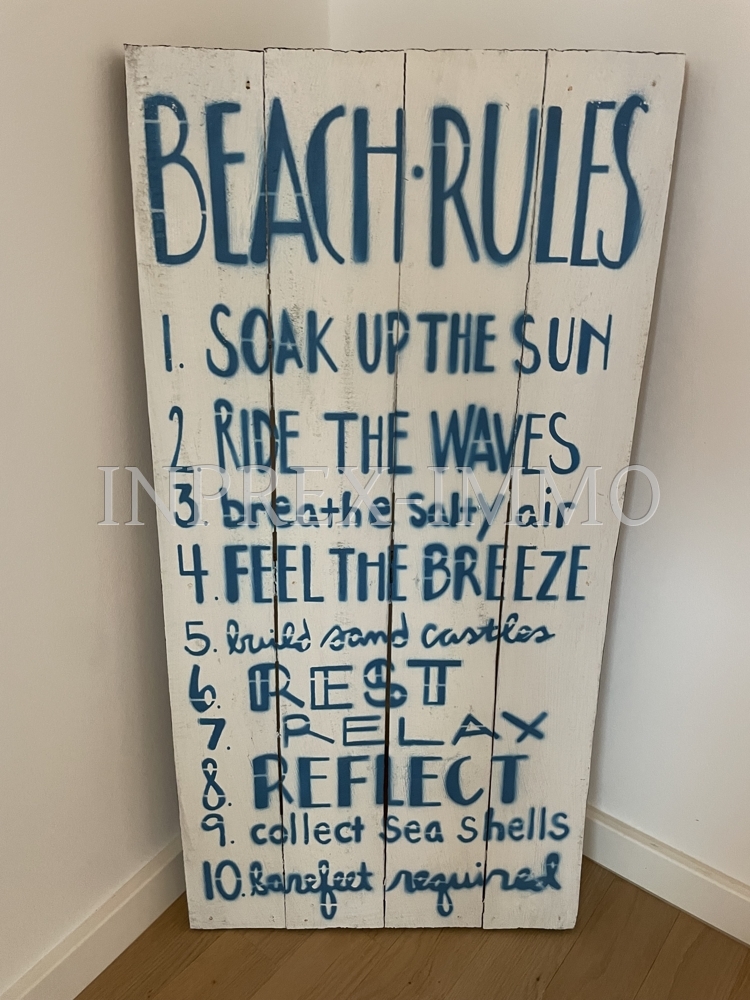 BEACH·RULES
1. SOAK UP THE SUN
2 RIDE THE WAVES
INPREX-IMMO
3. breathe salty air
4. FEEL THE BREEZE
5. build sand castles
6. REST
7. RELAX
8. REFLECT
9. collect sea shells
10. barefeet required